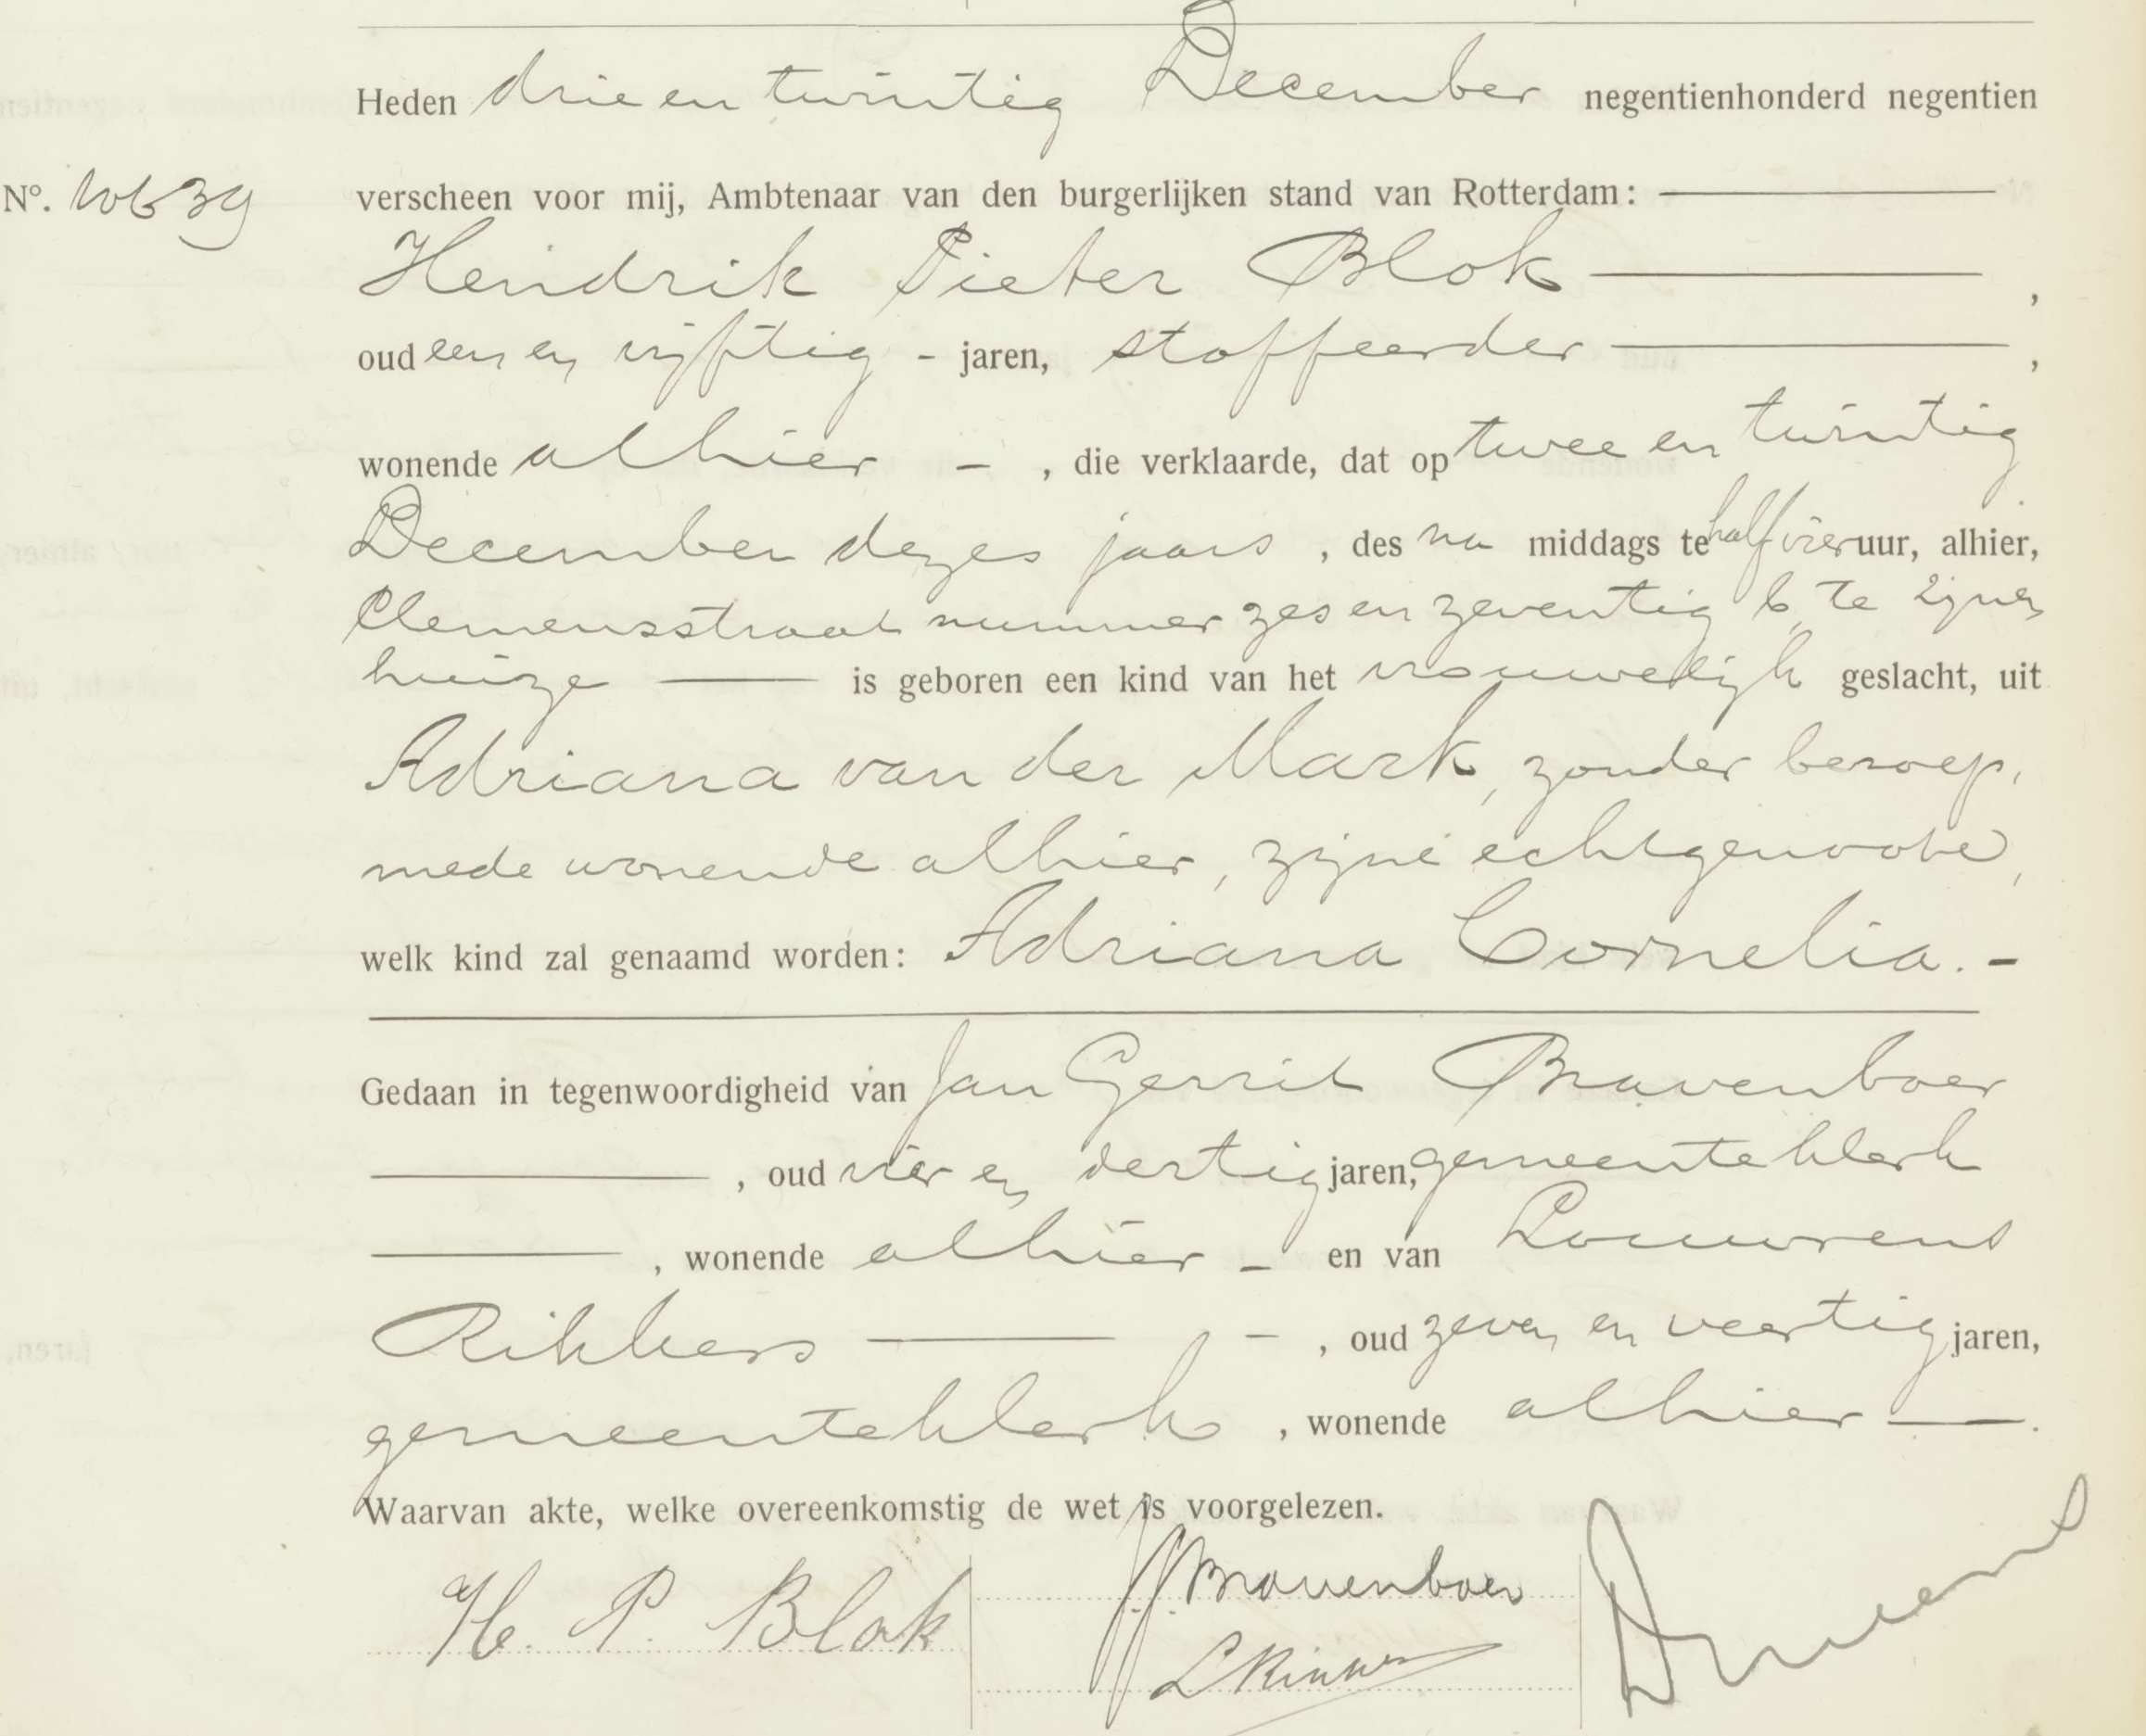 Heden drie en twintig December negentienhonderd negentien
Nº. 10639 verscheen voor mij, Ambtenaar van den burgerlijken stand van Rotterdam:
Hendrik Pieter Blok ,
oud een en vijftig - jaren, stoffeerder ,
wonende alhier - , die verklaarde, dat op twee en twintig
December dezes jaars , des na middags te half vier uur, alhier,
Clemensstraat nummer zes en zeventig b, te zijnen
huize is geboren een kind van het vrouwelijk geslacht, uit
Adriana van der Mark, zonder beroep,
mede wonende alhier, zijne echtgenoote,
welk kind zal genaamd worden: Adriana Cornelia. -
Gedaan in tegenwoordigheid van Jan Gerrit Bravenboer
, oud vier en dertig jaren, gemeenteklerk
, wonende alhier - en van Louwrens
Rikkers - , oud zeven en veertig jaren,
gemeenteklerk , wonende alhier .
Waarvan akte, welke overeenkomstig de wet is voorgelezen.
H. P. Blok
JGBravenboer